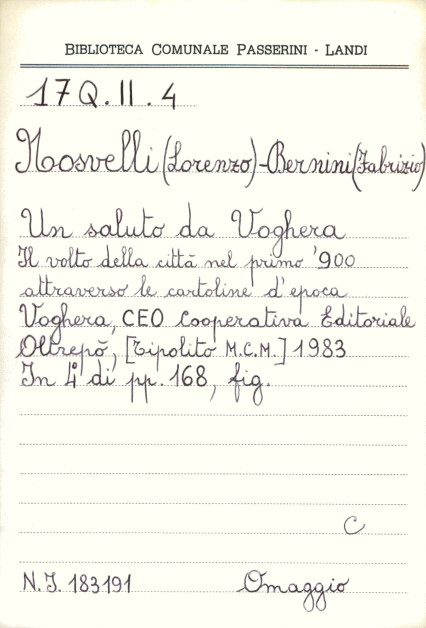 BIBLIOTECA COMUNALE PASSERINI - LANDI
17 Q. II. 4
Nosvelli (Lorenzo) - Bernini (Fabrizio)
Un saluto da Voghera
Il volto della città nel primo '900
attraverso le cartoline d'epoca
Voghera, CEO Cooperativa Editoriale
Oltrepò, [Tipolito M.C.M.] 1983
In 4° di pp. 168, fig.
C
N.I. 183191 Omaggio